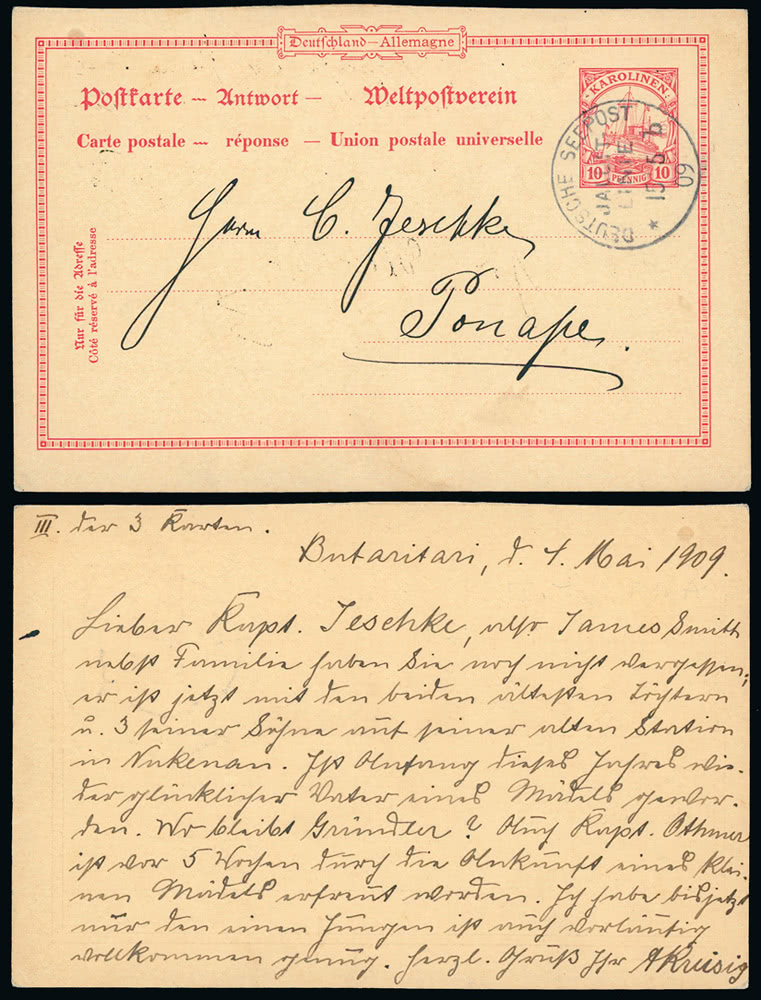 Deutschland—Allemagne
Postkarte — Antwort — Weltpostverein
Carte postale — réponse — Union postale universelle
KAROLINEN
10 PFENNIG 10
DEUTSCHE SEEPOST
JALUIT
LINIE
15 5
09
*
Nur für die Adresse
Côté réservé à l'adresse
Herrn C. Jeschke,
Ponape.
III. der 3 Karten.
Butaritari, d. 4. Mai 1909.
Lieber Kapt. Jeschke, also James Smith
nebst Familie haben Sie noch nicht vergessen;
er ist jetzt mit den beiden ältesten Töchtern
u. 3 seiner Söhne auf seiner alten Station
in Nukenau. Ist Anfang dieses Jahres wie-
der glücklicher Vater eines Mädels gewor-
den. Wo bleibt Gründler? Auch Kapt. Othmer
ist vor 5 Wochen durch die Ankunft eines klei-
nen Mädels erfreut worden. Ich habe bis jetzt
nur den einen Jungen ist auch vorläufig
vollkommen genug. Herzl. Gruß Ihr AKrüsig